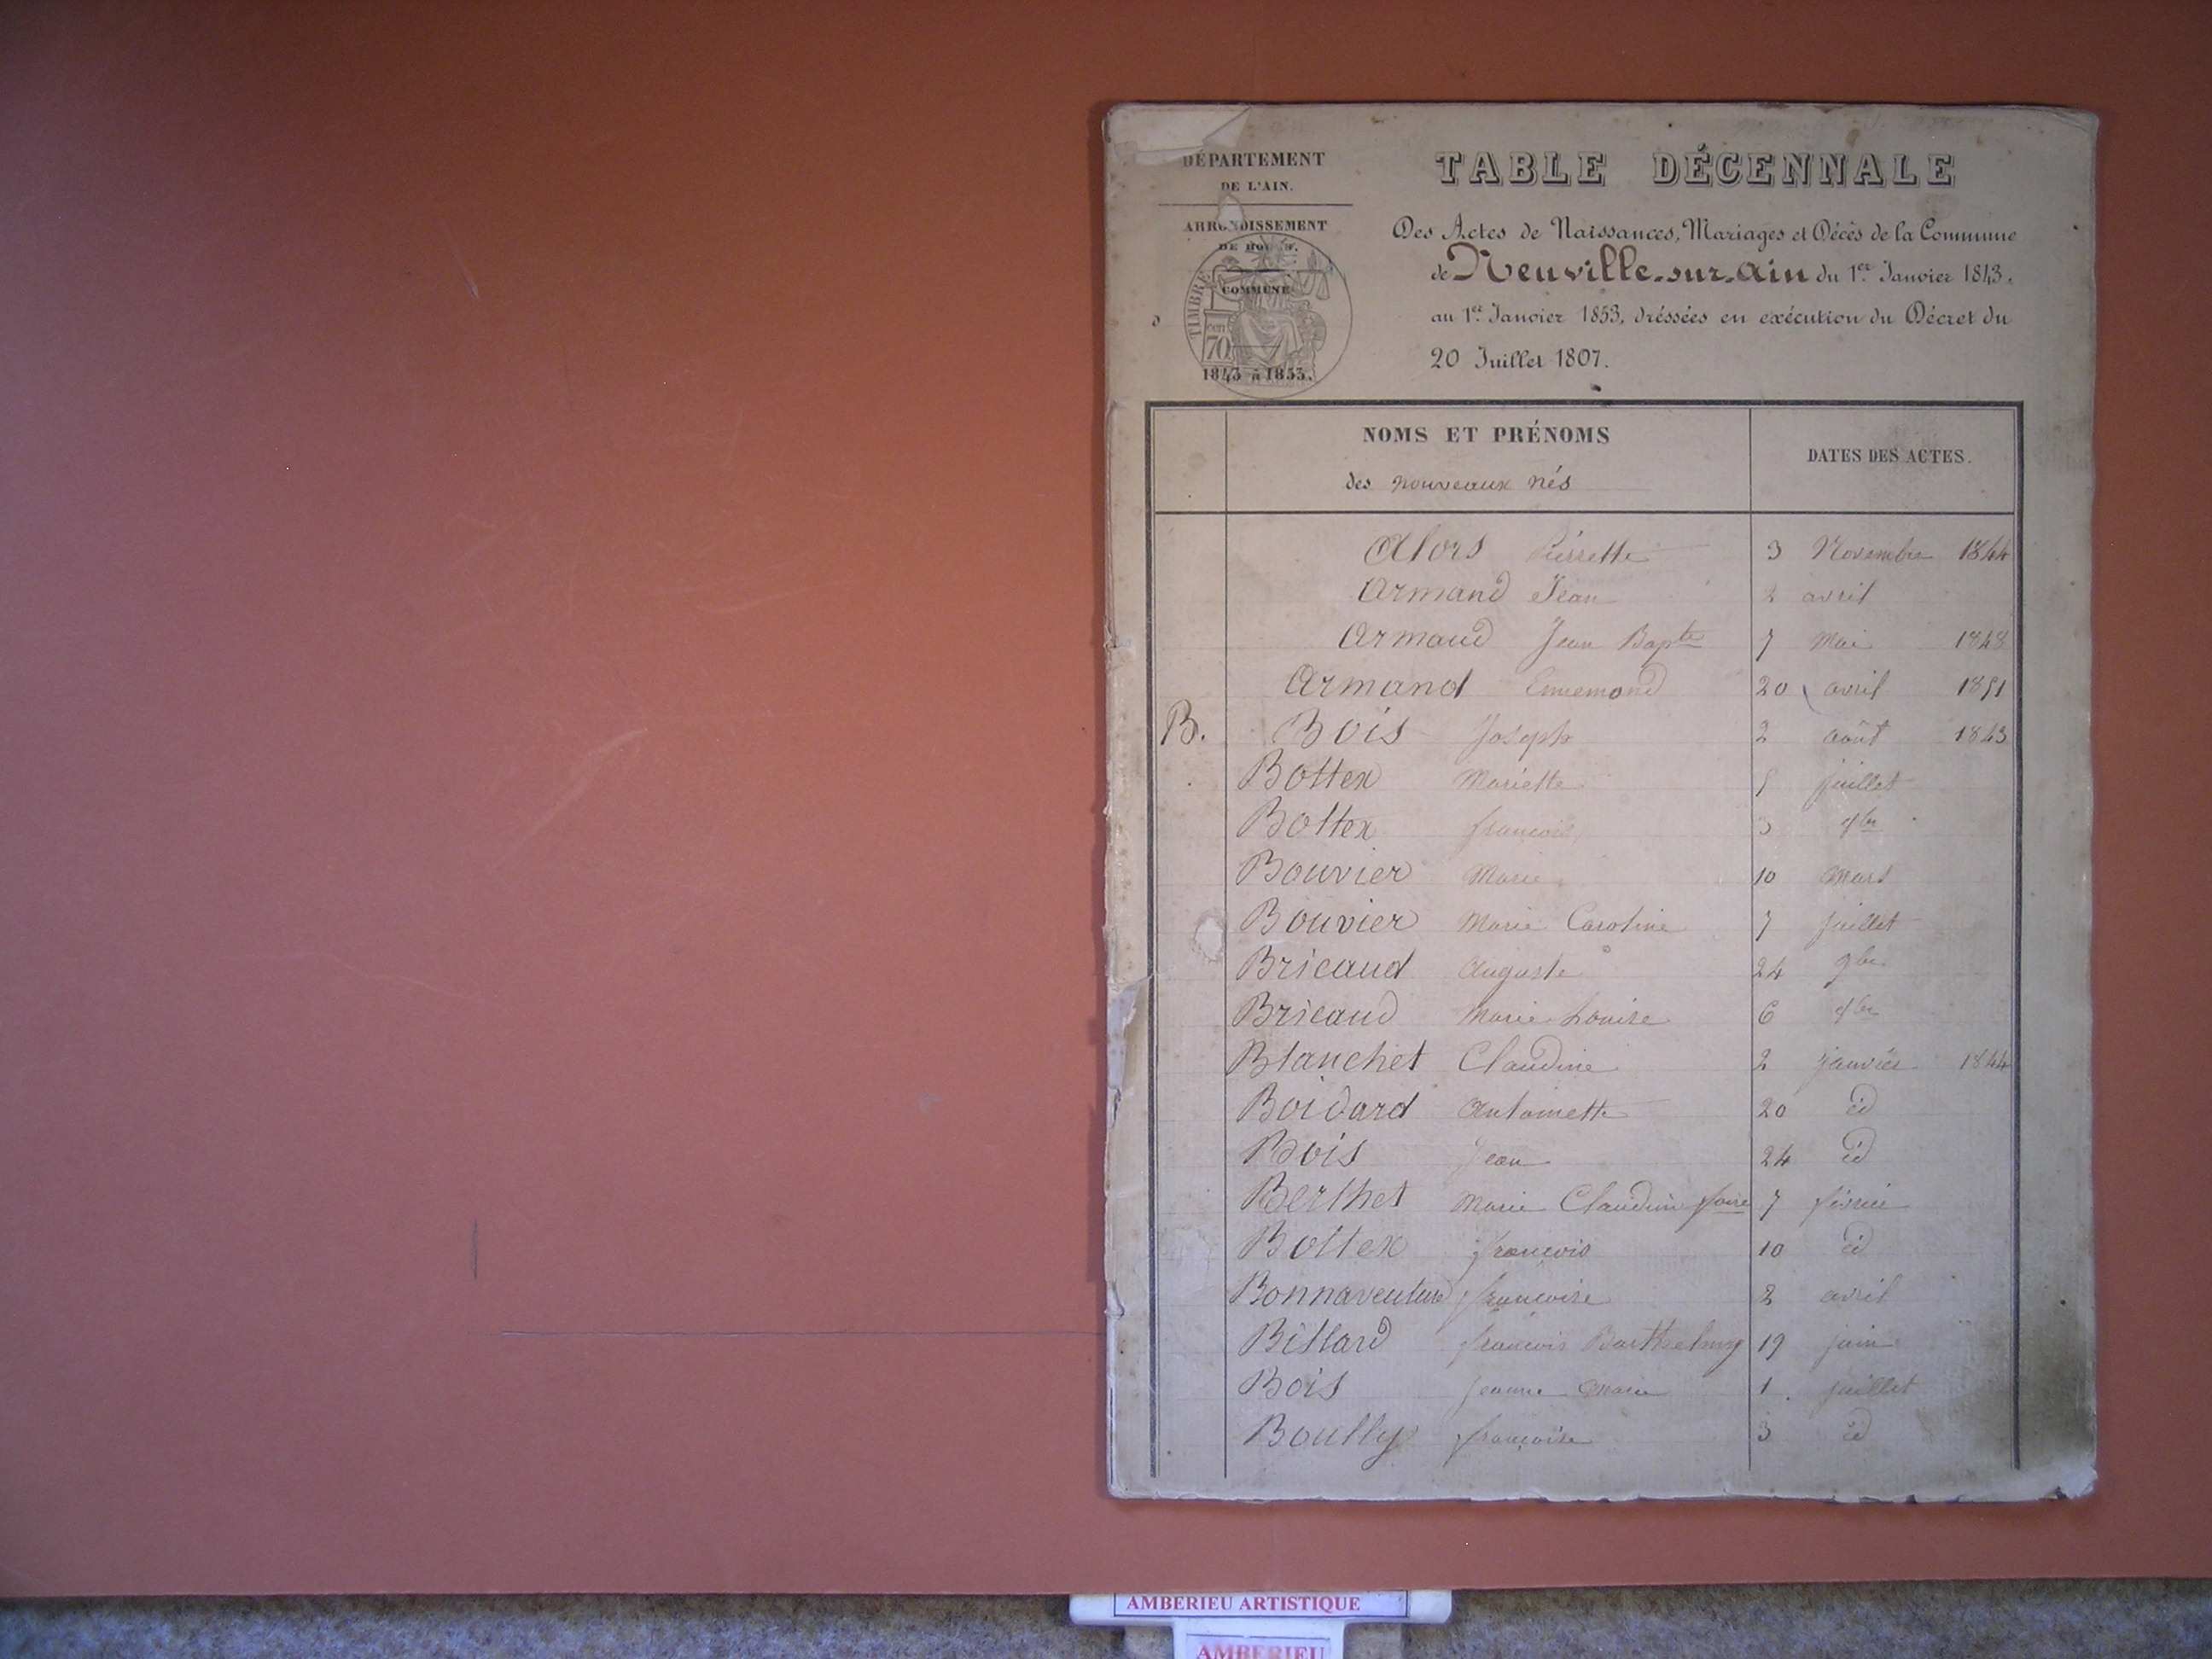 DÉPARTEMENT
DE L'AIN.
ARRONDISSEMENT
COMMUNE
TIMBRE
70
1843 à 1853.
TABLE DÉCENNALE
Des Actes de Naissances, Mariages et Décès de la Commune
de Neuville-sur-Ain du 1er Janvier 1843.
au 1er Janvier 1853, dréssées en exécution du Décret du
20 Juillet 1807.
NOMS ET PRÉNOMS
des nouveaux nés
DATES DES ACTES.
Alors Pierrette 3 Novembre 1844
Armand Jean 2 avril
Armand Jean Bapte 7 Mai 1848
Armand Ennemond 20 avril 1851
B. Bois Joseph 2 août 1843
Bottex Mariette 5 juillet
Bottex françois 3
Bouvier Marie 10 Mars
Bouvier Marie Caroline 7 juillet
Bricaud Auguste 24 9bre
Bricaud Marie Louise 6
Blanchet Claudine 2 janvier 1844
Boidard Antoinette 20 id
Bois Jean 24 id
Berthet Marie Claudine 7 février
Bottex françois 10 id
Bonnaventure françoise 2 avril
Billard françois Barthelmy 19 juin
Bois Jeanne Marie 1 juillet
Boully françoise 3 id
AMBERIEU ARTISTIQUE
AMBERIEU